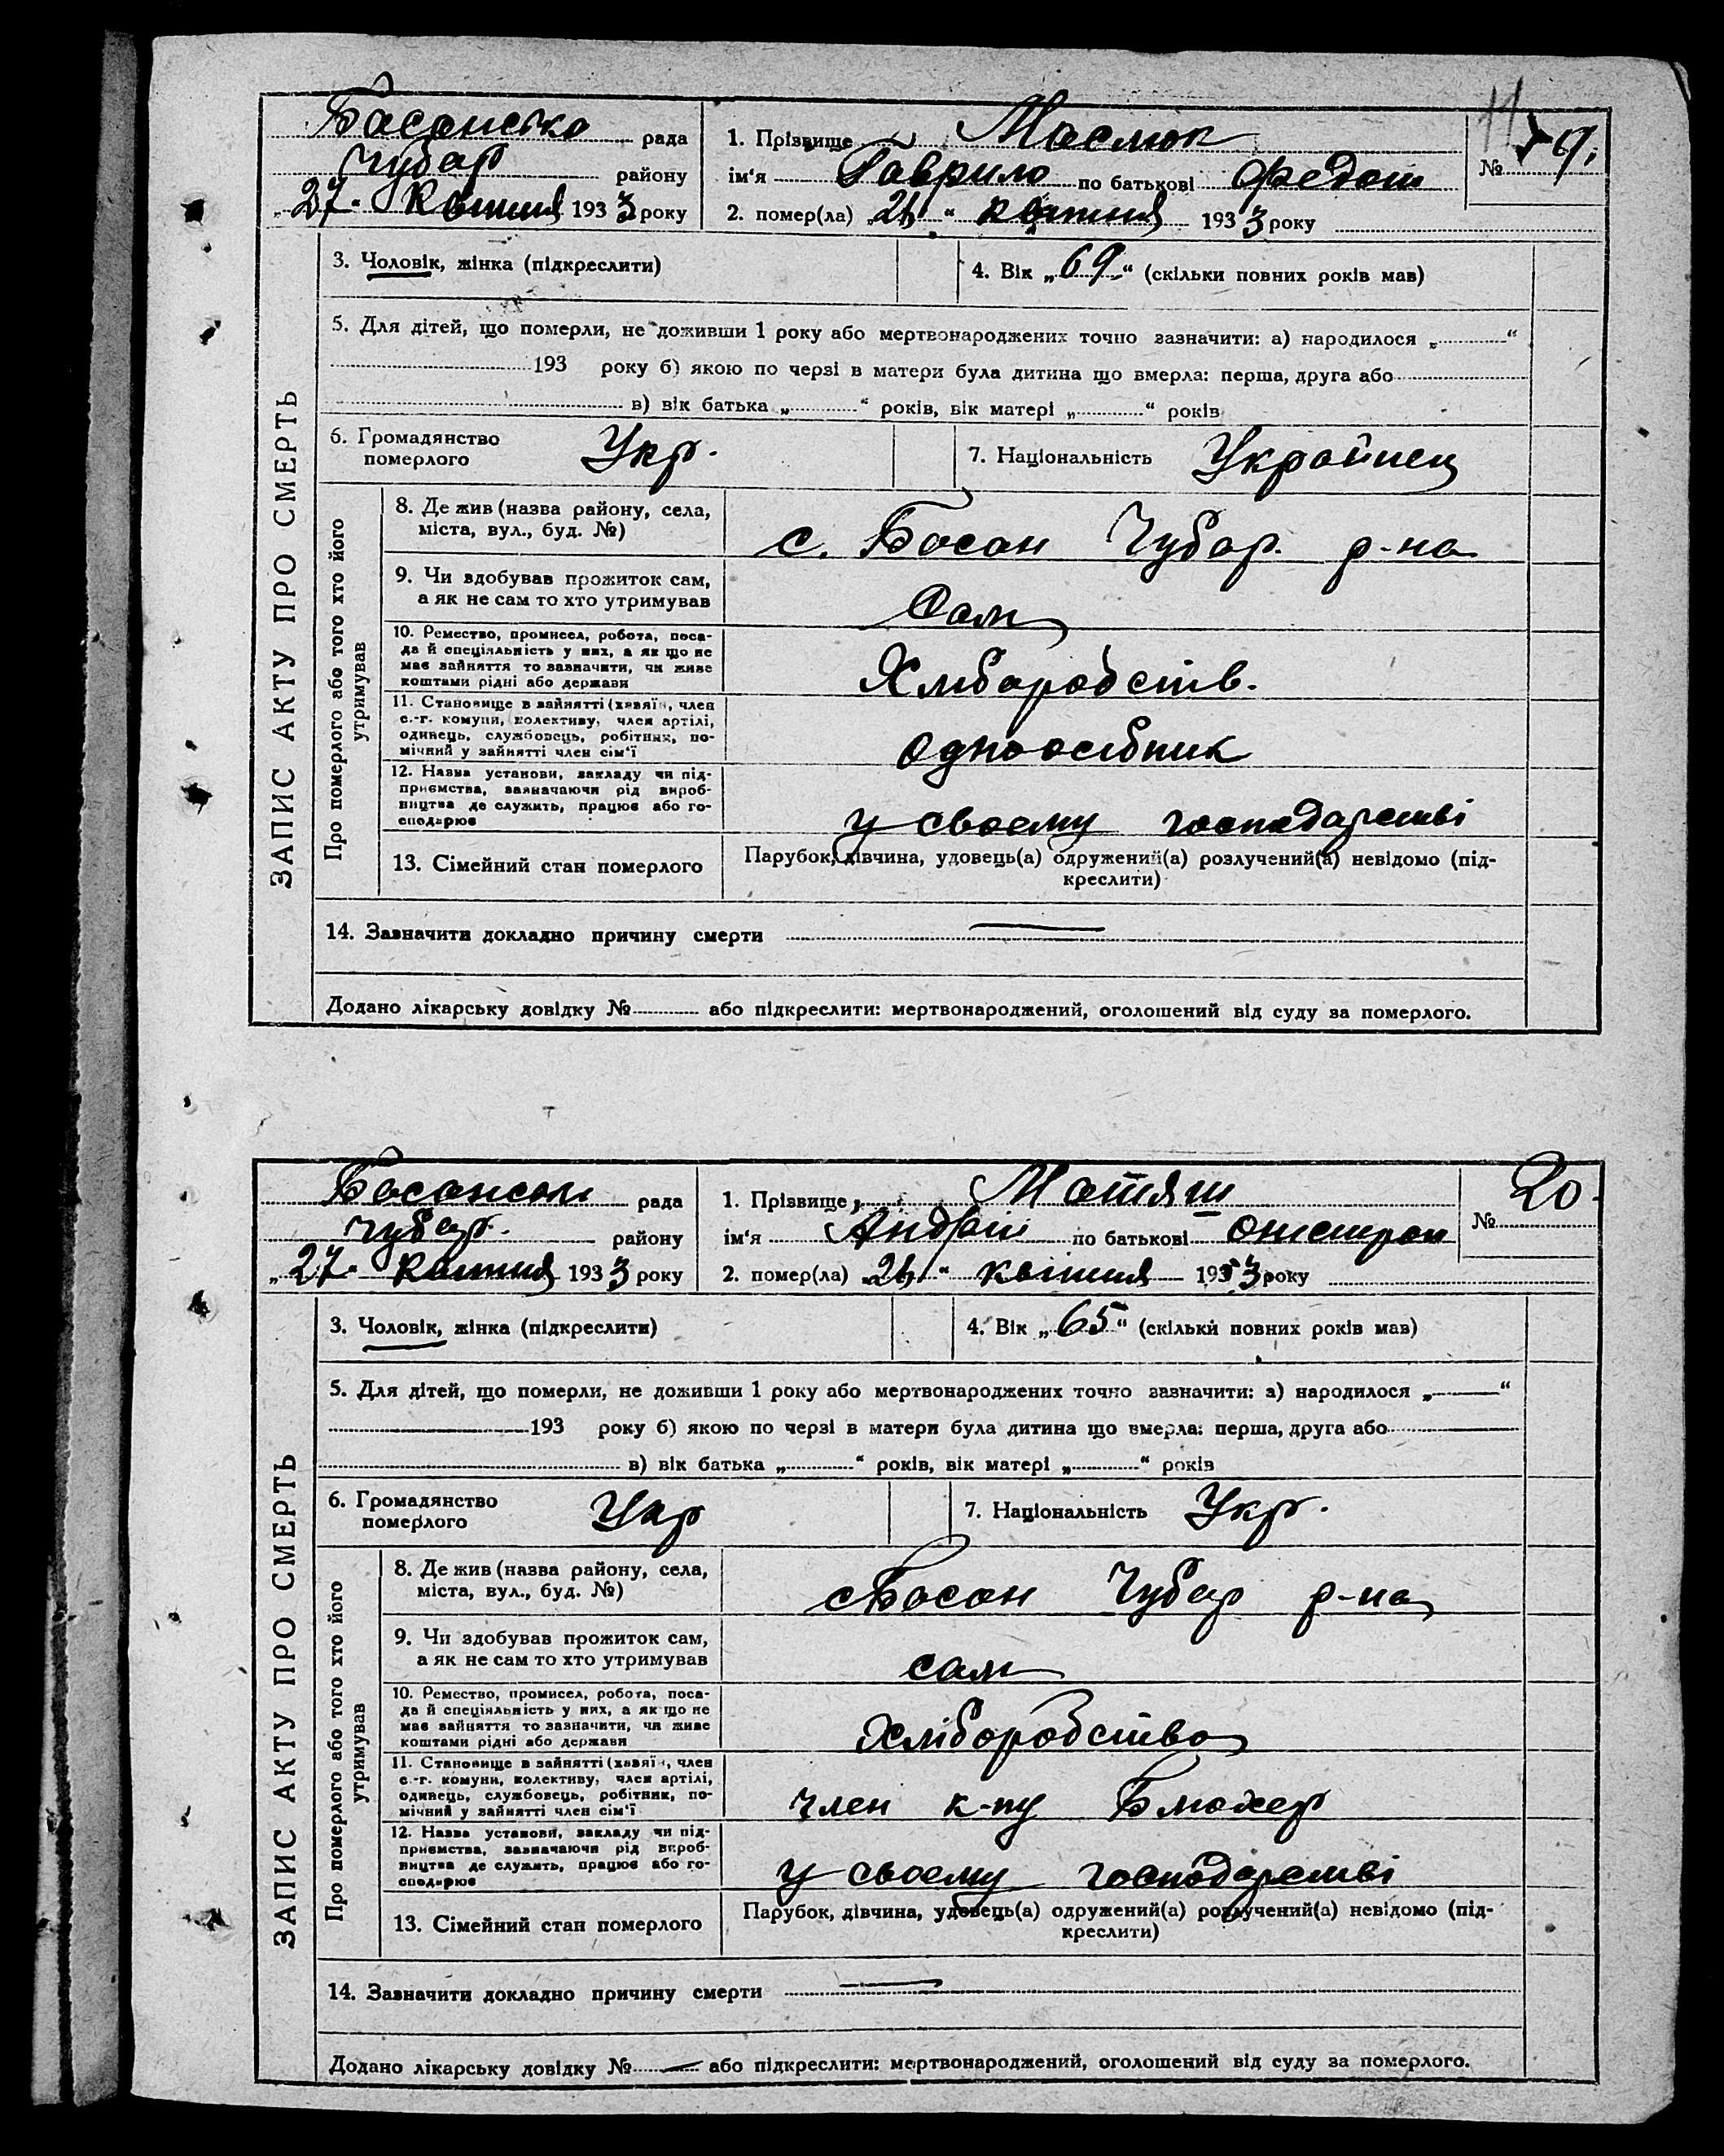 11
Басансько рада
Чубар району
„27" Квітня 1933 року
1. Прізвище Маслюк
ім'я Гаврило по батькові Федот
2. помер(ла) „24" квітня 1933 року
№ 19.
ЗАПИС АКТУ ПРО СМЕРТЬ
3. Чоловік, жінка (підкреслити)
4. Вік „69" (скільки повних років мав)
5. Для дітей, що померли, не доживши 1 року або мертвонароджених точно зазначити: а) народилося „ "
193 року б) якою по черзі в матери була дитина що вмерла: перша, друга або
в) вік батька „ " років, вік матері „ " років
6. Громадянство
померлого
Укр.
7. Національність Украйнец
Про померлого або того хто його
утримував
8. Де жив (назва району, села,
міста, вул., буд. №)
с. Босан Чубар. р-на
9. Чи здобував прожиток сам,
а як не сам то хто утримував
Сам
10. Ремество, промисел, робота, поса-
да й спеціяльність у них, а як що не
має зайняття то зазначити, чи живе
коштами рідні або держави
Хліборобств.
11. Становище в зайнятті (хазяїн, член
с.-г. комуни, колективу, член артілі,
одинець, службовець, робітник, по-
мічний у зайнятті член сім'ї
одноосібник
12. Назва установи, закладу чи під-
приємства, зазначаючи рід вироб-
ництва де служить, працює або го-
сподарює
у своему господарстві
13. Сімейний стан померлого
Парубок, дівчина, удовець(а) одружений(а) розлучений(а) невідомо (під-
креслити)
14. Зазначити докладно причину смерти —
Додано лікарську довідку № або підкреслити: мертвонароджений, оголошений від суду за померлого.
Басанськ рада
Чубар. району
„27" Квітня 1933 року
1. Прізвище Матяш
ім'я Андрій по батькові
2. помер(ла) „24" квітня 1933 року
№ 20.
ЗАПИС АКТУ ПРО СМЕРТЬ
3. Чоловік, жінка (підкреслити)
4. Вік „65" (скільки повних років мав)
5. Для дітей, що померли, не доживши 1 року або мертвонароджених точно зазначити: а) народилося „ "
193 року б) якою по черзі в матери була дитина що вмерла: перша, друга або
в) вік батька „ " років, вік матері „ " років
6. Громадянство
померлого
Укр
7. Національність Укр.
Про померлого або того хто його
утримував
8. Де жив (назва району, села,
міста, вул., буд. №)
с Босан Чубар р-на
9. Чи здобував прожиток сам,
а як не сам то хто утримував
сам
10. Ремество, промисел, робота, поса-
да й спеціяльність у них, а як що не
має зайняття то зазначити, чи живе
коштами рідні або держави
Хліборобство
11. Становище в зайнятті (хазяїн, член
с.-г. комуни, колективу, член артілі,
одинець, службовець, робітник, по-
мічний у зайнятті член сім'ї
член к-пу Блюхер
12. Назва установи, закладу чи під-
приємства, зазначаючи рід вироб-
ництва де служить, працює або го-
сподарює
у своему господарстві
13. Сімейний стан померлого
Парубок, дівчина, удовець(а) одружений(а) розлучений(а) невідомо (під-
креслити)
14. Зазначити докладно причину смерти —
Додано лікарську довідку № — або підкреслити: мертвонароджений, оголошений від суду за померлого.